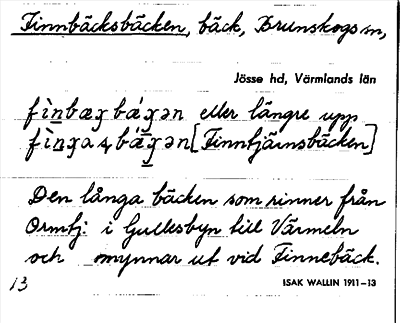 Finnbäcksbäcken, bäck, Brunskogs sn,
Jösse hd, Värmlands län
eller längre upp
[Finntjärnsbäcken]
Den långa bäcken som rinner från
Ormtj. i Gullesbyn till Värmeln
och mynnar ut vid Finnebäck.
13
ISAK WALLIN 1911–13